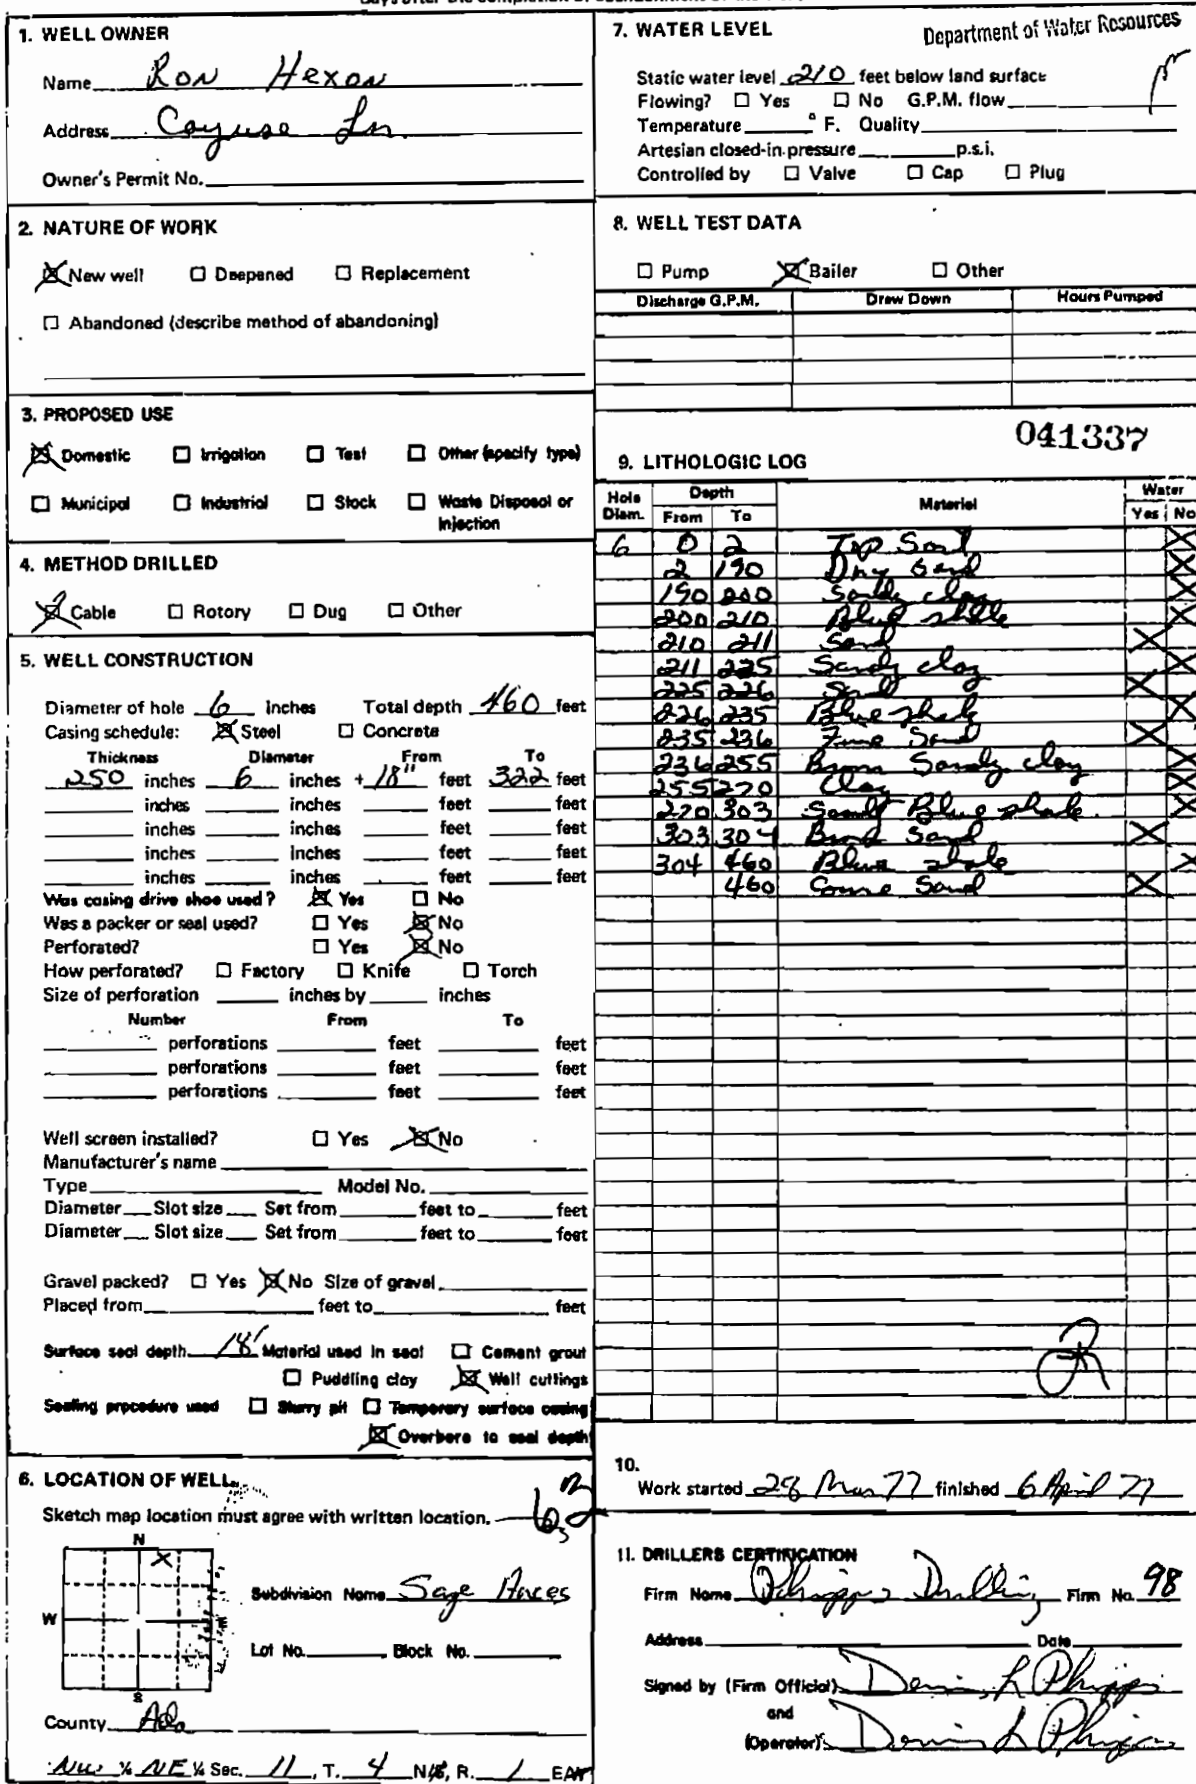 1. WELL OWNER
Name Ron Hexon
Address Cayuse Ln.
Owner's Permit No.
2. NATURE OF WORK
☒ New well ☐ Deepened ☐ Replacement
☐ Abandoned (describe method of abandoning)
3. PROPOSED USE
☒ Domestic ☐ Irrigation ☐ Test ☐ Other (specify type)
☐ Municipal ☐ Industrial ☐ Stock ☐ Waste Disposal or
Injection
4. METHOD DRILLED
☒ Cable ☐ Rotory ☐ Dug ☐ Other
5. WELL CONSTRUCTION
Diameter of hole 6 inches Total depth 460 feet
Casing schedule: ☒ Steel ☐ Concrete
Thickness Diameter From To
.250 inches 6 inches + 18" feet 322 feet
inches inches feet feet
inches inches feet feet
inches inches feet feet
inches inches feet feet
Was casing drive shoe used? ☒ Yes ☐ No
Was a packer or seal used? ☐ Yes ☒ No
Perforated? ☐ Yes ☒ No
How perforated? ☐ Factory ☐ Knife ☐ Torch
Size of perforation inches by inches
Number From To
perforations feet feet
perforations feet feet
perforations feet feet
Well screen installed? ☐ Yes ☒ No
Manufacturer's name
Type Model No.
Diameter Slot size Set from feet to feet
Diameter Slot size Set from feet to feet
Gravel packed? ☐ Yes ☒ No Size of gravel
Placed from feet to feet
Surface seal depth 18' Material used in seal ☐ Cement grout
☐ Puddling clay ☒ Well cuttings
Sealing procedure used ☐ Slurry pit ☐ Temporary surface casing
☒ Overbore to seal depth
6. LOCATION OF WELL
Sketch map location must agree with written location.
N
X
W
S
Subdivision Name Sage Acres
Lot No. Block No.
County Ada
NW ¼ NE ¼ Sec. 11, T. 4 N/S, R. 1 E/W
7. WATER LEVEL
Department of Water Resources
Static water level 210 feet below land surface
Flowing? ☐ Yes ☐ No G.P.M. flow
Temperature ° F. Quality
Artesian closed-in pressure p.s.i.
Controlled by ☐ Valve ☐ Cap ☐ Plug
8. WELL TEST DATA
☐ Pump ☒ Bailer ☐ Other
Discharge G.P.M. Draw Down Hours Pumped
041337
9. LITHOLOGIC LOG
Hole Diam. Depth Material Water
From To Yes No
6 0 2 Top Soil X
2 190 Dry Sand X
190 200 Sandy clay X
200 210 Blue shale X
210 211 Sand X
211 225 Sandy clay X
225 226 Sand X
226 235 Blue shale X
235 236 Fine Sand X
236 255 Brown Sandy clay X
255 270 Clay X
270 303 Sandy Blue shale X
303 304 Sand X
304 460 Blue shale X
460 Coarse Sand X
10.
Work started 28 Mar 77 finished 6 April 77
11. DRILLERS CERTIFICATION
Firm Name Phipps Drilling Firm No. 98
Address Date
Signed by (Firm Official) Dennis L Phipps
and
(Operator) Dennis L Phipps